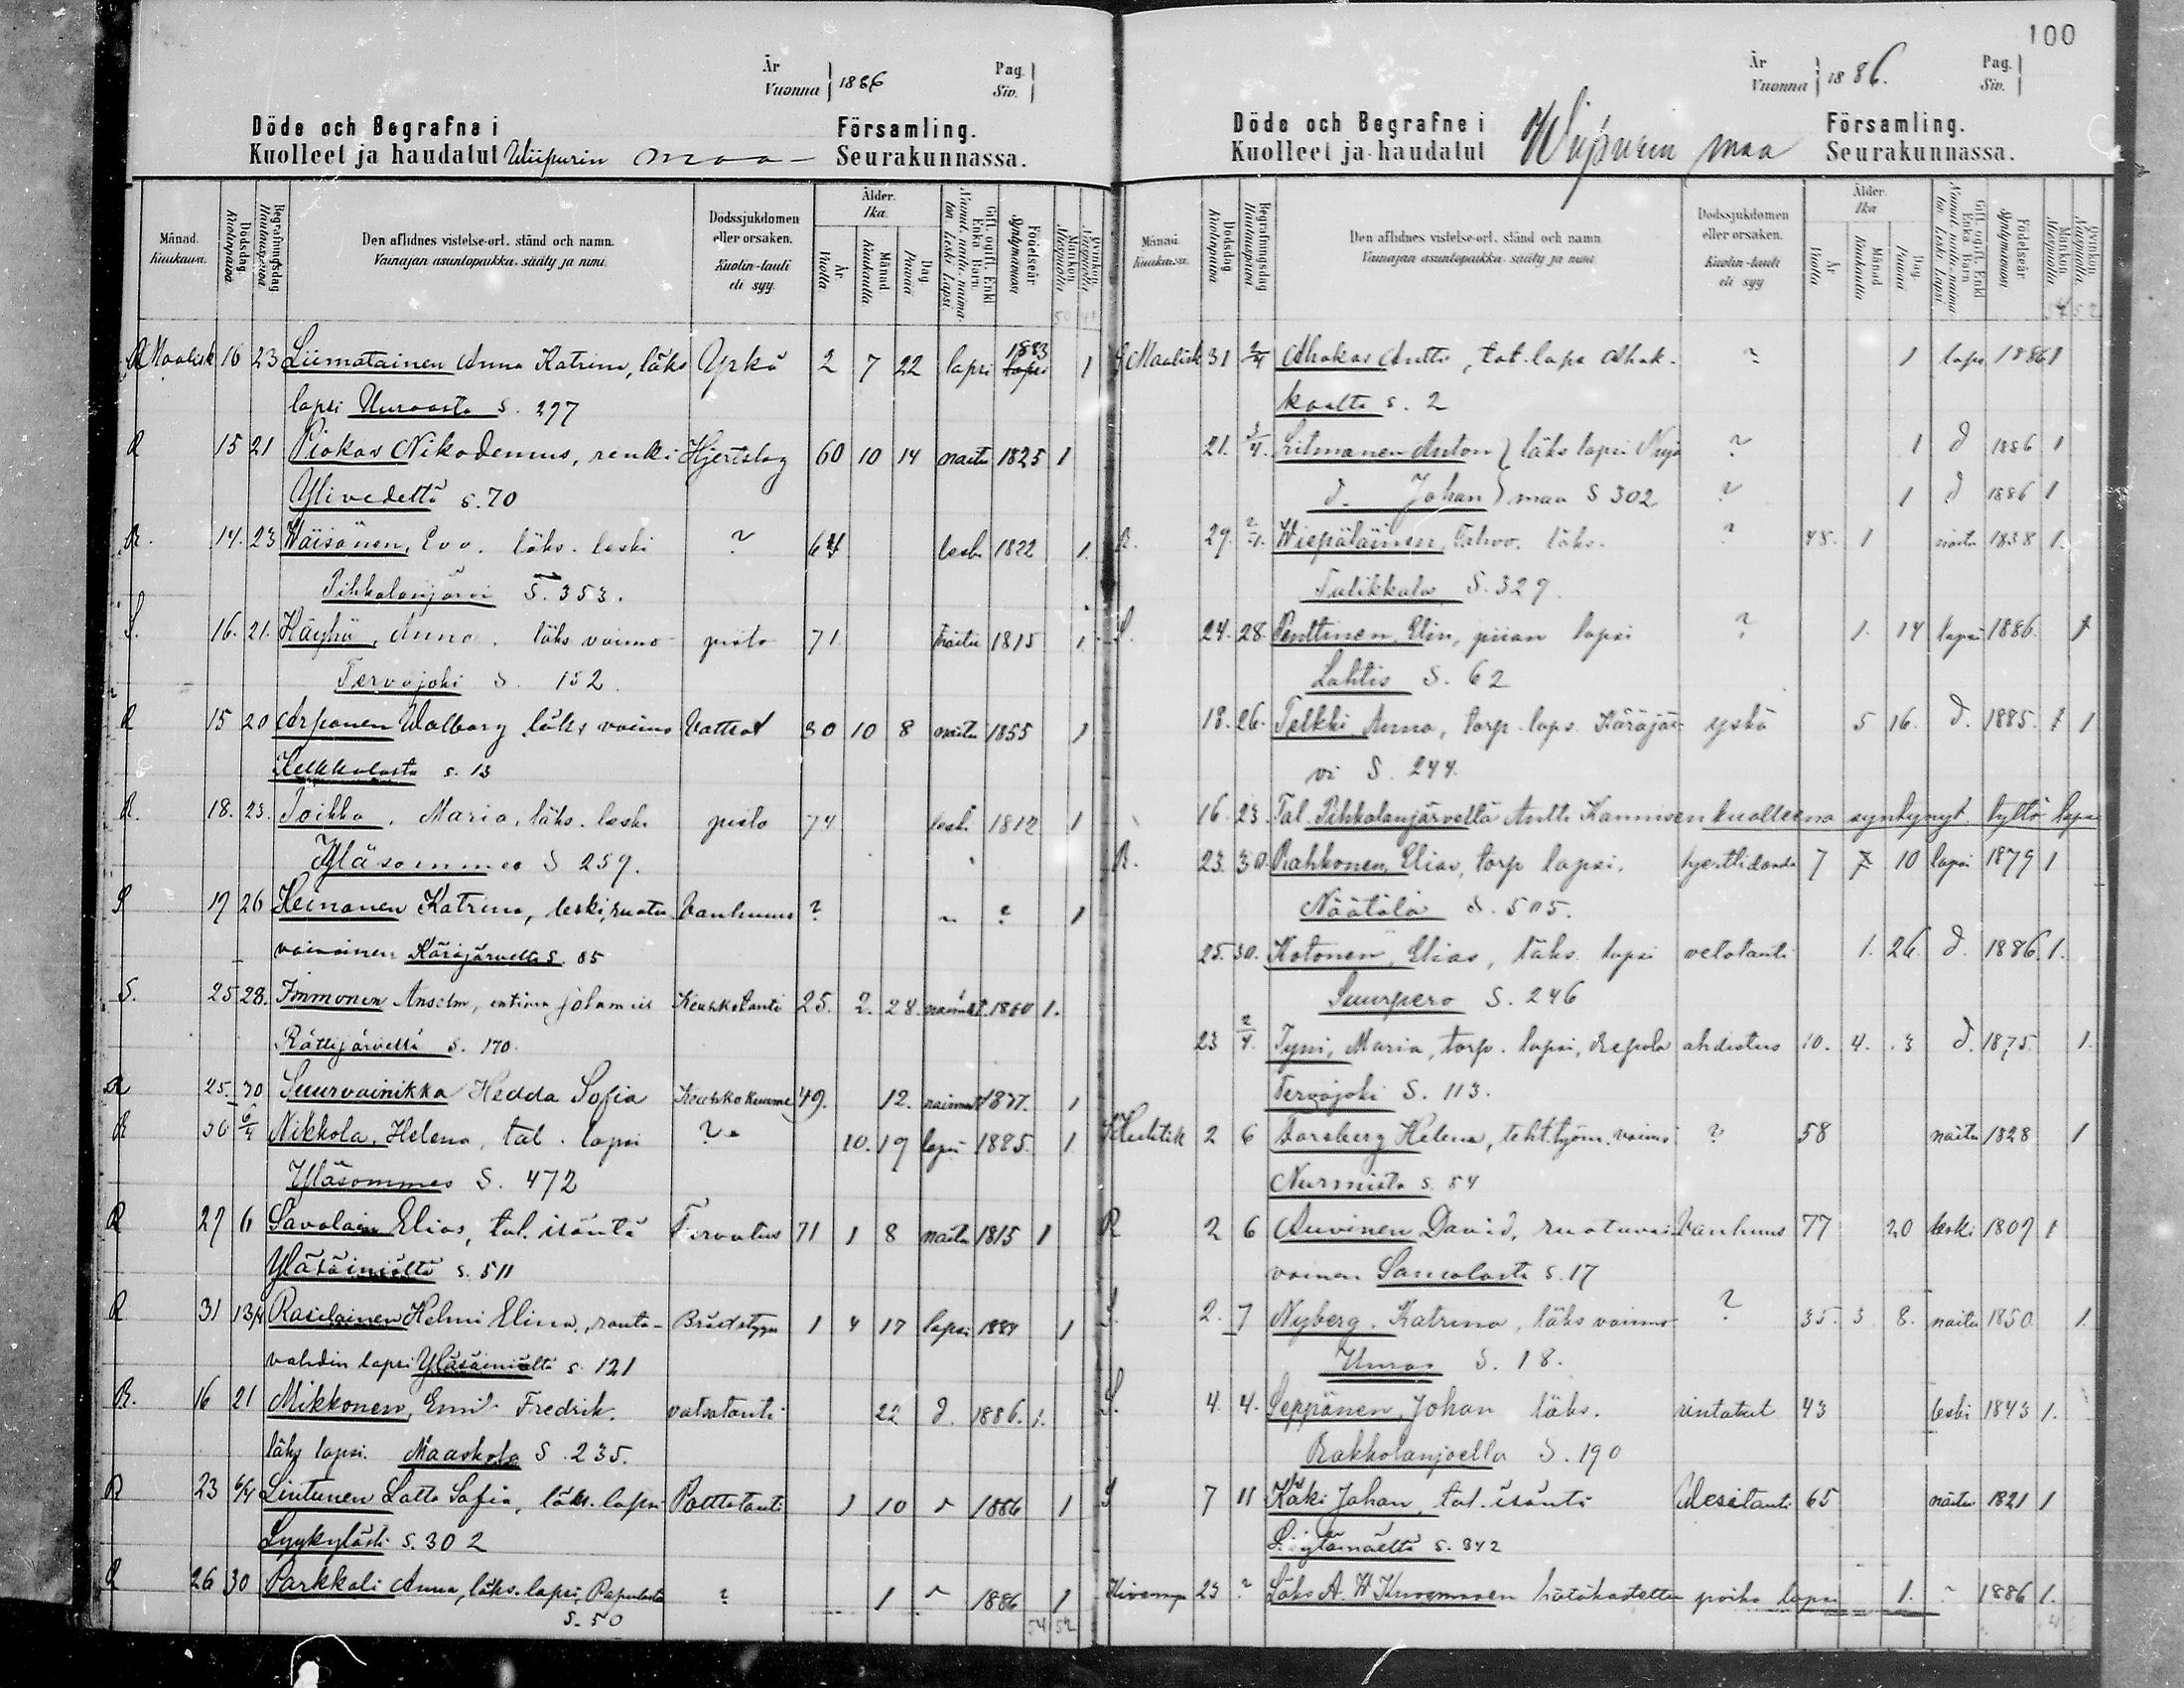 År
Vuonna 1886
Pag.
Siv.
Döde och Begrafne i Församling.
Kuolleet ja haudatut Wiipurin maa- Seurakunnassa.
Månad. Kuukausi.
Dödsdag Kuolinpäivä
Begrafningsdag Hautauspäivä
Den aflidnes vistelse-ort, stånd och namn.
Vainajan asuntopaikka, sääty ja nimi.
Dödssjukdomen eller orsaken.
Kuolin-tauti eli syy.
Ålder. Ikä.
År Vuotta
Månad Kuukautta
Dag Päivää
Gift, ogift, Enkl. Enka, Barn
Födelseår Syntymävuosi
Mankön. Miespuolia
Qvinkön.
50 41
R Maalisk 16 23 Liimatainen Anna Katrina, läks Yskä 2 7 22 lapsi 1883 1
lapsi Uuraasta S. 297
R 15 21 Piokas Nikodemus, renki Hjertslag 60 10 14 naitu 1825 1
Ylivedeltä s. 70
R. 14. 23 Wäisänen, Eva. läks. leski ? 64 leski 1822 1.
Pihkalanjärvi S. 353.
S. 16. 21. Häyhä, Anna. läks vaimo pisto 71 naitu 1815 1
Tervajoki S. 152.
R 15 20 Arponen Walborg läks vaimo Vattsot 30 10 8 naitu 1855 1
Kelkkalasta s. 13
R. 18. 23. Toikka, Maria, läks. leski pisto 74 leski 1812 1
Yläsommee S 259.
S 19 26 Heinonen Katrina, leski, ruotu Vanhuus ? " ? 1
vaivainen Käräjärveltä S. 85
S. 25 28. Immonen Anselm, entinen Keuhkotauti 25. 2. 28. naimat. 1860 1.
Rättijärveltä S. 170.
R 25. 30 Suurvainikka Hedda Sofia Keuhkokuume 49. 12. naimat 1837. 1
R 30 6/4 Nikkola, Helena, tal. lapsi ? 10. 19 lapsi 1885. 1
Yläsommee S. 472
R 27 6 Savolain Elias, tal. isäntä Turvatus 71 1 8 naitu 1815 1
Yläsäiniöltä s. 511
R 31 13/4 Rasilainen Helmi Elina, rauta- 1 4 17 lapsi 1884 1
vahdin lapsi Yläsäiniöltä s. 121
R. 16 21 Mikkonen, Emil Fredrik. vatsatauti 22 d. 1886. 1.
läks lapsi. Maaskola S. 235.
R 23 6/4 Lintunen Lotta Sofia, läks. lapsi Polttotauti 1 10 d 1886 1
Lyykylästä S. 302
R 26 30 Parkkali Anna, läks. lapsi, Papulasta ? 1 d 1886 1
S. 50
54 52
100
År
Vuonna 1886.
Pag.
Siv.
Döde och Begrafne i Församling.
Kuolleet ja haudatut Wiipurin maa Seurakunnassa.
Månad. Kuukausi.
Dödsdag Kuolinpäivä
Begrafningsdag Hautauspäivä
Den aflidnes vistelse-ort, stånd och namn
Vainajan asuntopaikka, sääty ja nimi
Dödssjukdomen eller orsaken.
Kuolin-tauti eli syy
Ålder. Ikä
År Vuotta
Månad Kuukautta
Dag Päivää
Gift, ogift, Enkl. Enka, Barn
Födelseår Syntymävuosi
Mankön. Miespuolia
Qvinkön. Naispuolia
54 52
S Maalisk 31 2/4 Ahokas Antti, tal. laps Ahok- ? 1 laps 1886 1
kaalta s. 2
21. 3/4. Litmanen Anton läks lapsi Nuijamaa S 302 ? 1 d 1886 1
d. Johan ? 1 d 1886 1
R. 29. 2/4. Wiepäläinen, Tahvo. läks. ? 48. 1 naitu 1838 1.
Tulikkala S. 329.
S. 24. 28. Penttinen, Elin, piian lapsi ? 1. 14 lapsi 1886. 1
Lahtis S. 62
18. 26. Telkki Anna, torp. laps. Käräjär- yskä 5 16. d. 1885. 1
vi S. 244.
16. 23. Tal. Pihkalanjärvellä Antti Kannisen kuolleena syntynyt tyttö lapsi
R. 23. 30. Rahkonen, Elias, torp lapsi. 7 7 10 lapsi 1879 1
Näätälä S. 505.
25. 30. Kotonen, Elias, läks. lapsi velotauti 1. 26. d. 1886. 1.
Suurpero S. 246
23 2/4. Tyni, Maria, torp. lapsi, Repola ahdistus 10. 4. 3 d. 1875. 1.
Tervajoki S. 113.
S Huhtik 2 6 Forsberg Helena, teht. työm. vaimo ? 58 naitu 1828 1
Nurmista s. 54
R 2 6 Auvinen David, ruotuvai- Vanhuus 77 20 leski 1809 1
vainen Samolasta S. 17
S. 2. 7 Nyberg. Katrina, läks vaimo ? 35. 3 8. naitu 1850 1.
Uuras S. 18.
S. 4. 4. Seppänen, Johan läks. rintataut 43 leski 1843 1.
Rakkolanjoella S. 190
S 7 11 Käki Johan, tal. isäntä Vesitauti 65 naitu 1821 1
s. 342
Kivenap 23 ? Läks A. W hätäkastettu poika lapsi 1. 1886 1.